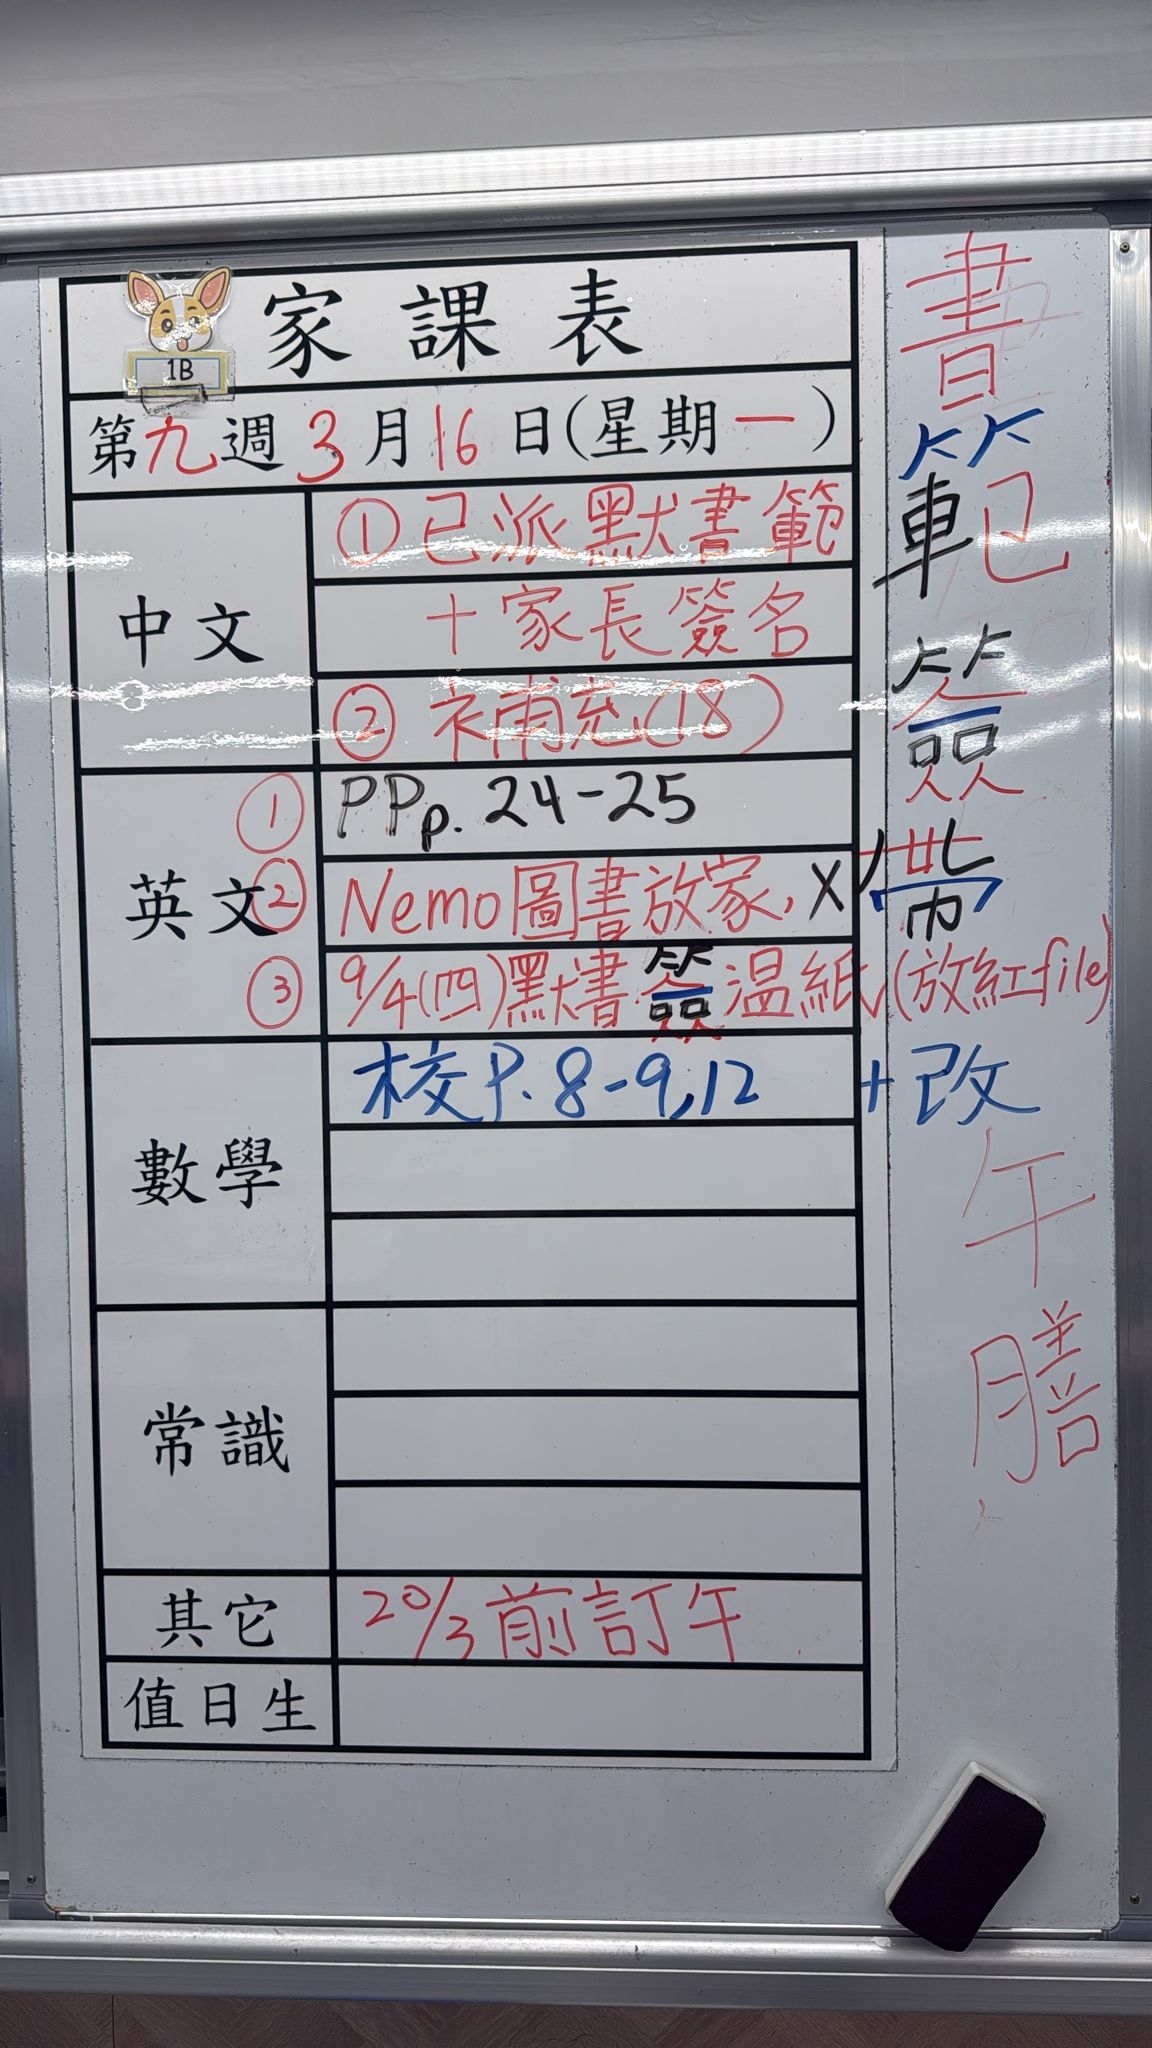 家課表
1B
第九週3月16日(星期一)
中文
①已派默書範
+家長簽名
②補充(18)
英文
①PP p. 24-25
②Nemo圖書放家,X帶
③9/4(四)默書簽溫紙(放紅file)
數學
校P. 8-9,12+改
常識
其它
20/3前訂午
值日生
書
範
簽
午
膳